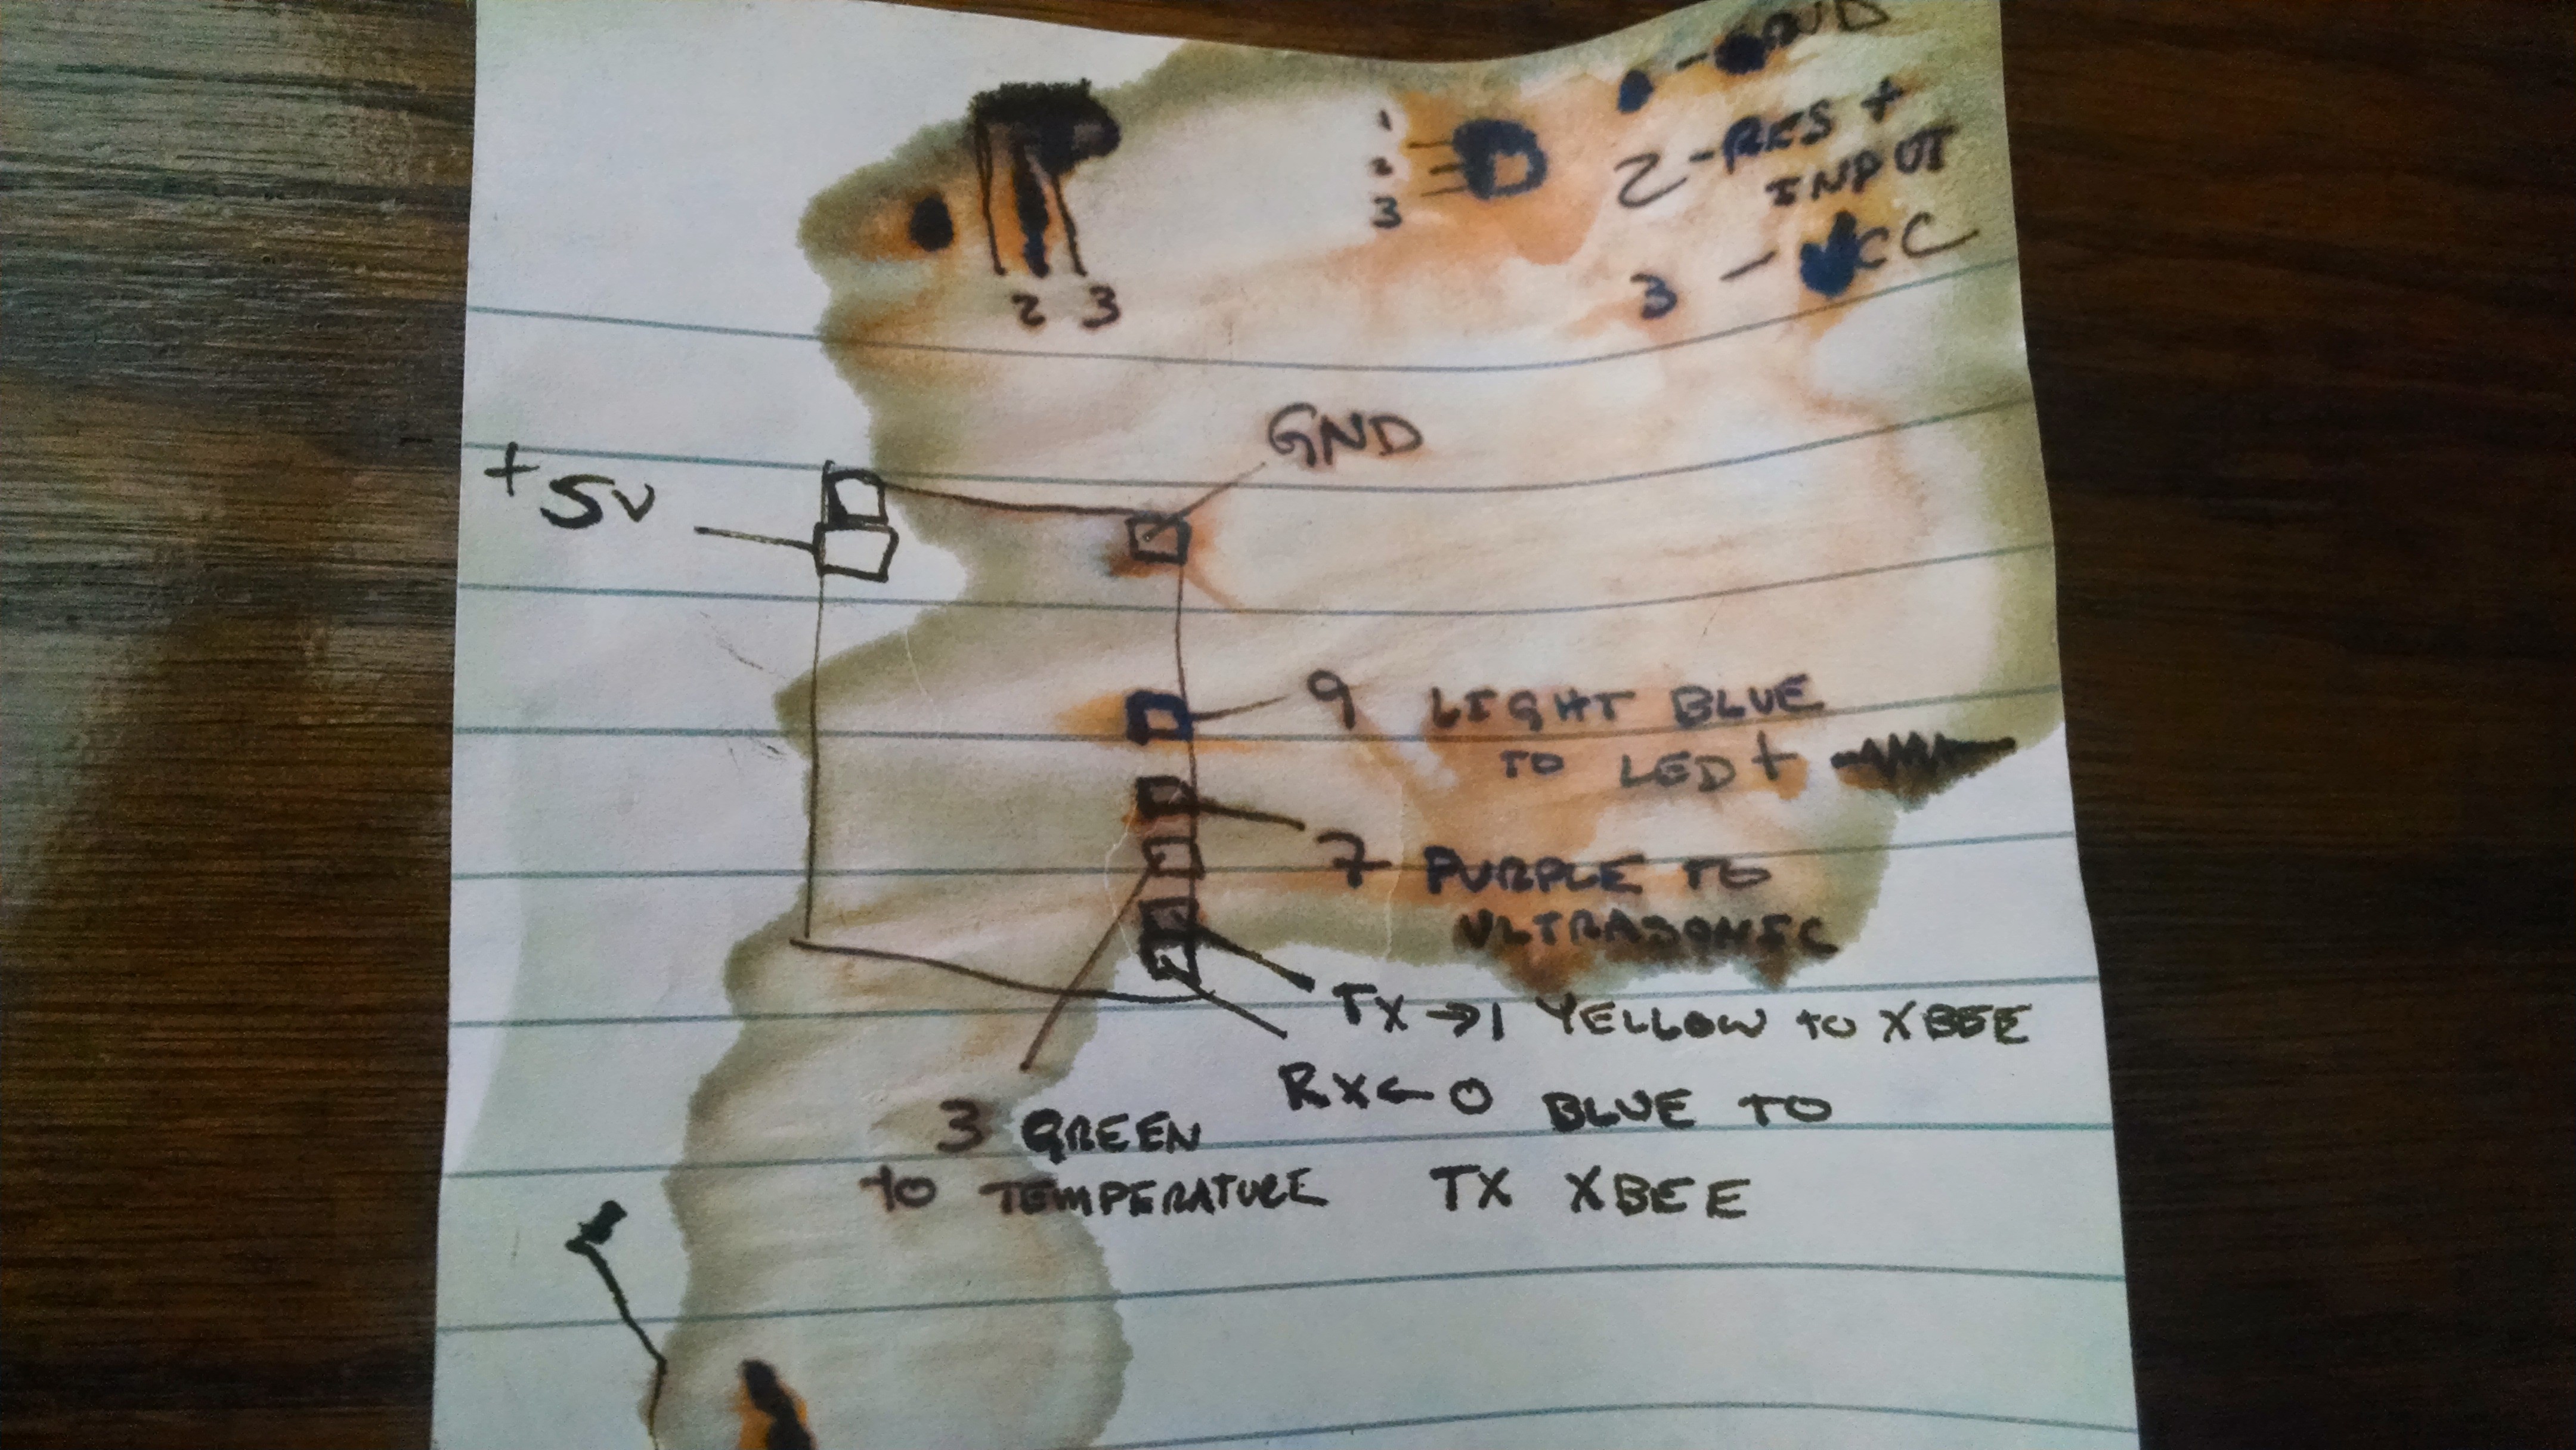 - GND
1
2
3
2 - RES +
INPUT
3 - VCC
2 3
GND
+5V
9 LIGHT BLUE
TO LED +
7 PURPLE TO
ULTRASONIC
TX → 1 YELLOW TO XBEE
RX ← 0 BLUE TO
TX XBEE
3 GREEN
TO TEMPERATURE